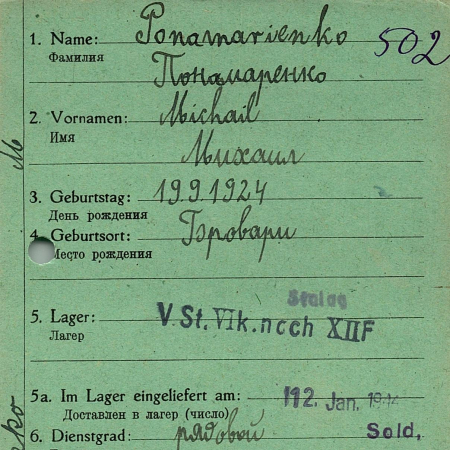 1. Name: Ponamarienko 502
Фамилия Понамаренко
2. Vornamen: Michail
Имя Михаил
3. Geburtstag: 19.9.1924
День рождения
4. Geburtsort: Бровари
Место рождения
Stalag
5. Lager: V. St. VIk. nach XIIF
Лагер
5a. Im Lager eingeliefert am: 12. Jan. 1944
Доставлен в лагер (число)
6. Dienstgrad: рядовой Sold.